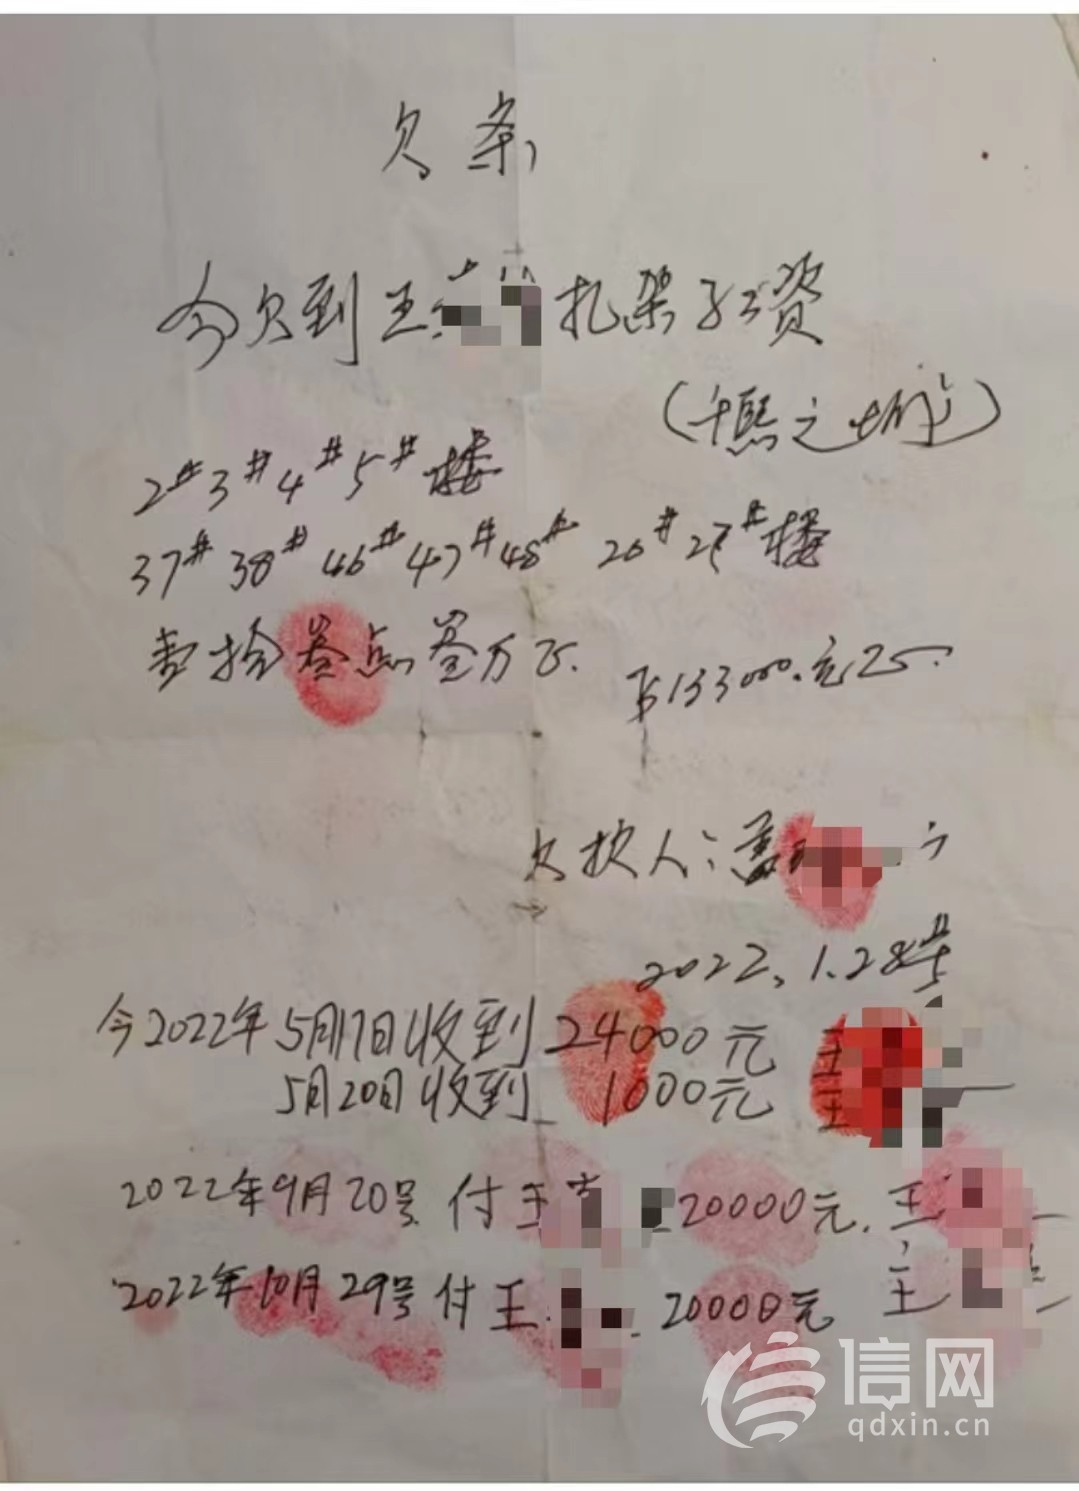 欠条
今欠到王 扎架子工资
(千熙之城)
2#3#4#5#楼
37#38#46#47#48# 26#27#楼
壹拾叁点叁万元. ¥133000.元25.
欠款人:
2022.1.28号
今2022年5月17日收到24000元 王
5月20日收到 1000元 王
2022年9月20号.付王 20000元.王
2022年10月29号付王 20000元 王
信网
qdxin.cn